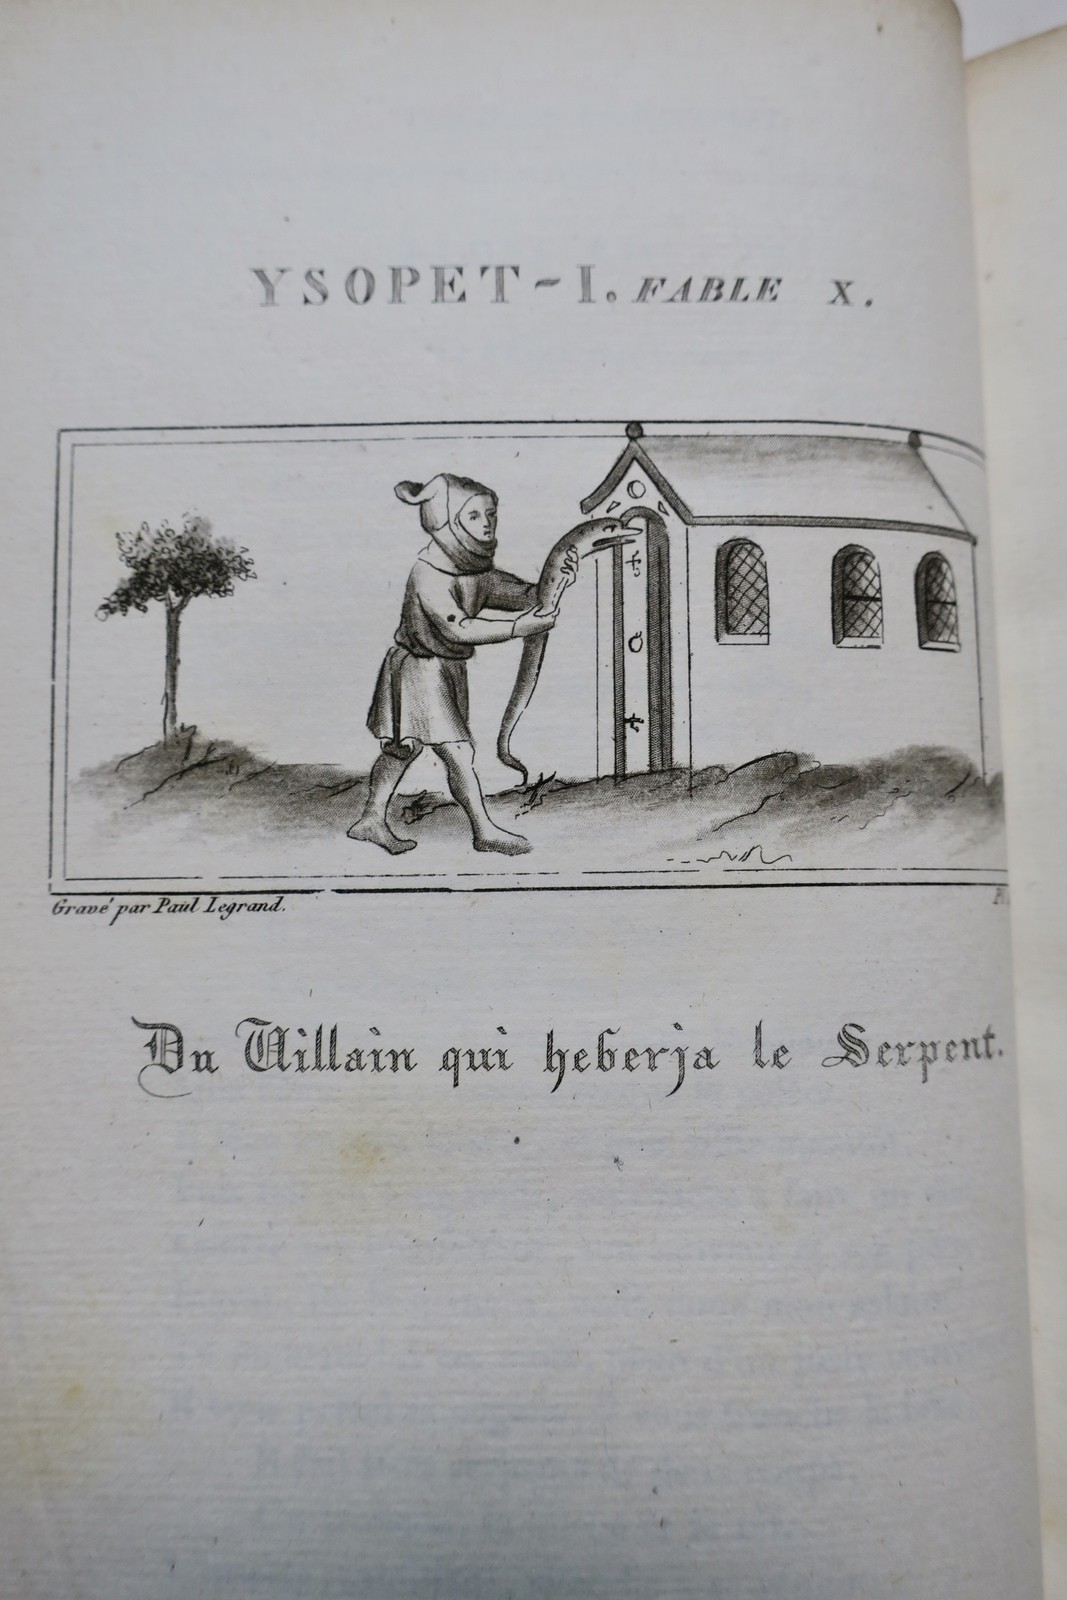 YSOPET-I. FABLE X.
Gravé par Paul Legrand.
Du Villain qui heberja le Serpent.